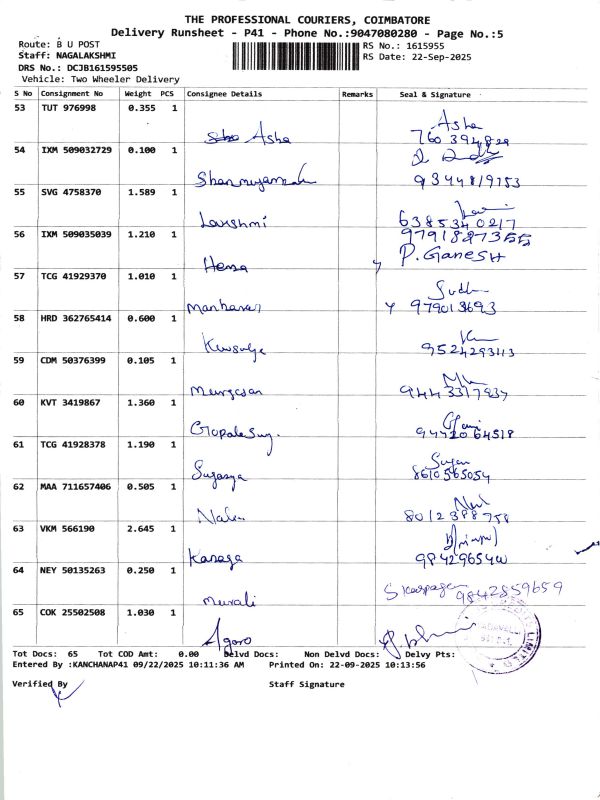 THE PROFESSIONAL COURIERS, COIMBATORE
Delivery Runsheet - P41 - Phone No.:9047080280 - Page No.:5
Route: B U POST
RS No.: 1615955
Staff: NAGALAKSHMI
RS Date: 22-Sep-2025
DRS No.: DCJB161595505
Vehicle: Two Wheeler Delivery
S No Consignment No Weight PCS Consignee Details Remarks Seal & Signature
53 TUT 976998 0.355 1
Asha Asha
54 IXM 509032729 0.100 1
9344819153
55 SVG 4758370 1.589 1
Lakshmi 6385340217
56 IXM 509035039 1.210 1
Hema P. GANESH
57 TCG 41929370 1.010 1
Sudh
58 HRD 362765414 0.600 1
9524293113
59 CDM 50376399 0.105 1
Murugesan
60 KVT 3419867 1.360 1
61 TCG 41928378 1.190 1
8610565054
62 MAA 711657406 0.505 1
8012388758
63 VKM 566190 2.645 1
Kanaga
64 NEY 50135263 0.250 1
murali 9842859659
65 COK 25502508 1.030 1
Tot Docs: 65 Tot COD Amt: 0.00 Delvd Docs: Non Delvd Docs: Delvy Pts:
Entered By :KANCHANAP41 09/22/2025 10:11:36 AM Printed On: 22-09-2025 10:13:56
Verified By Staff Signature